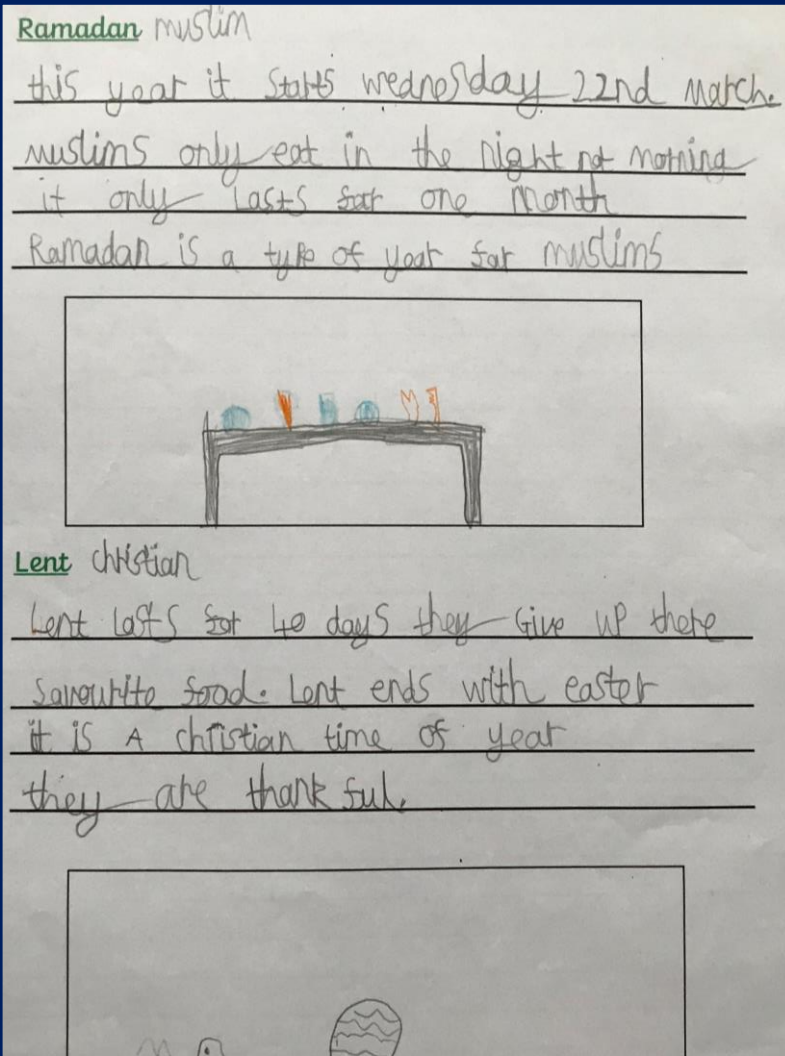 Ramadan muslim
this year it starts wednesday 22nd march.
muslims only eat in the night not morning
it only lasts for one month
Ramadan is a type of year for muslims
Lent christian
Lent lasts for 40 days they Give up there
favourite food. Lent ends with easter
it is A christian time of year
they are thankful.